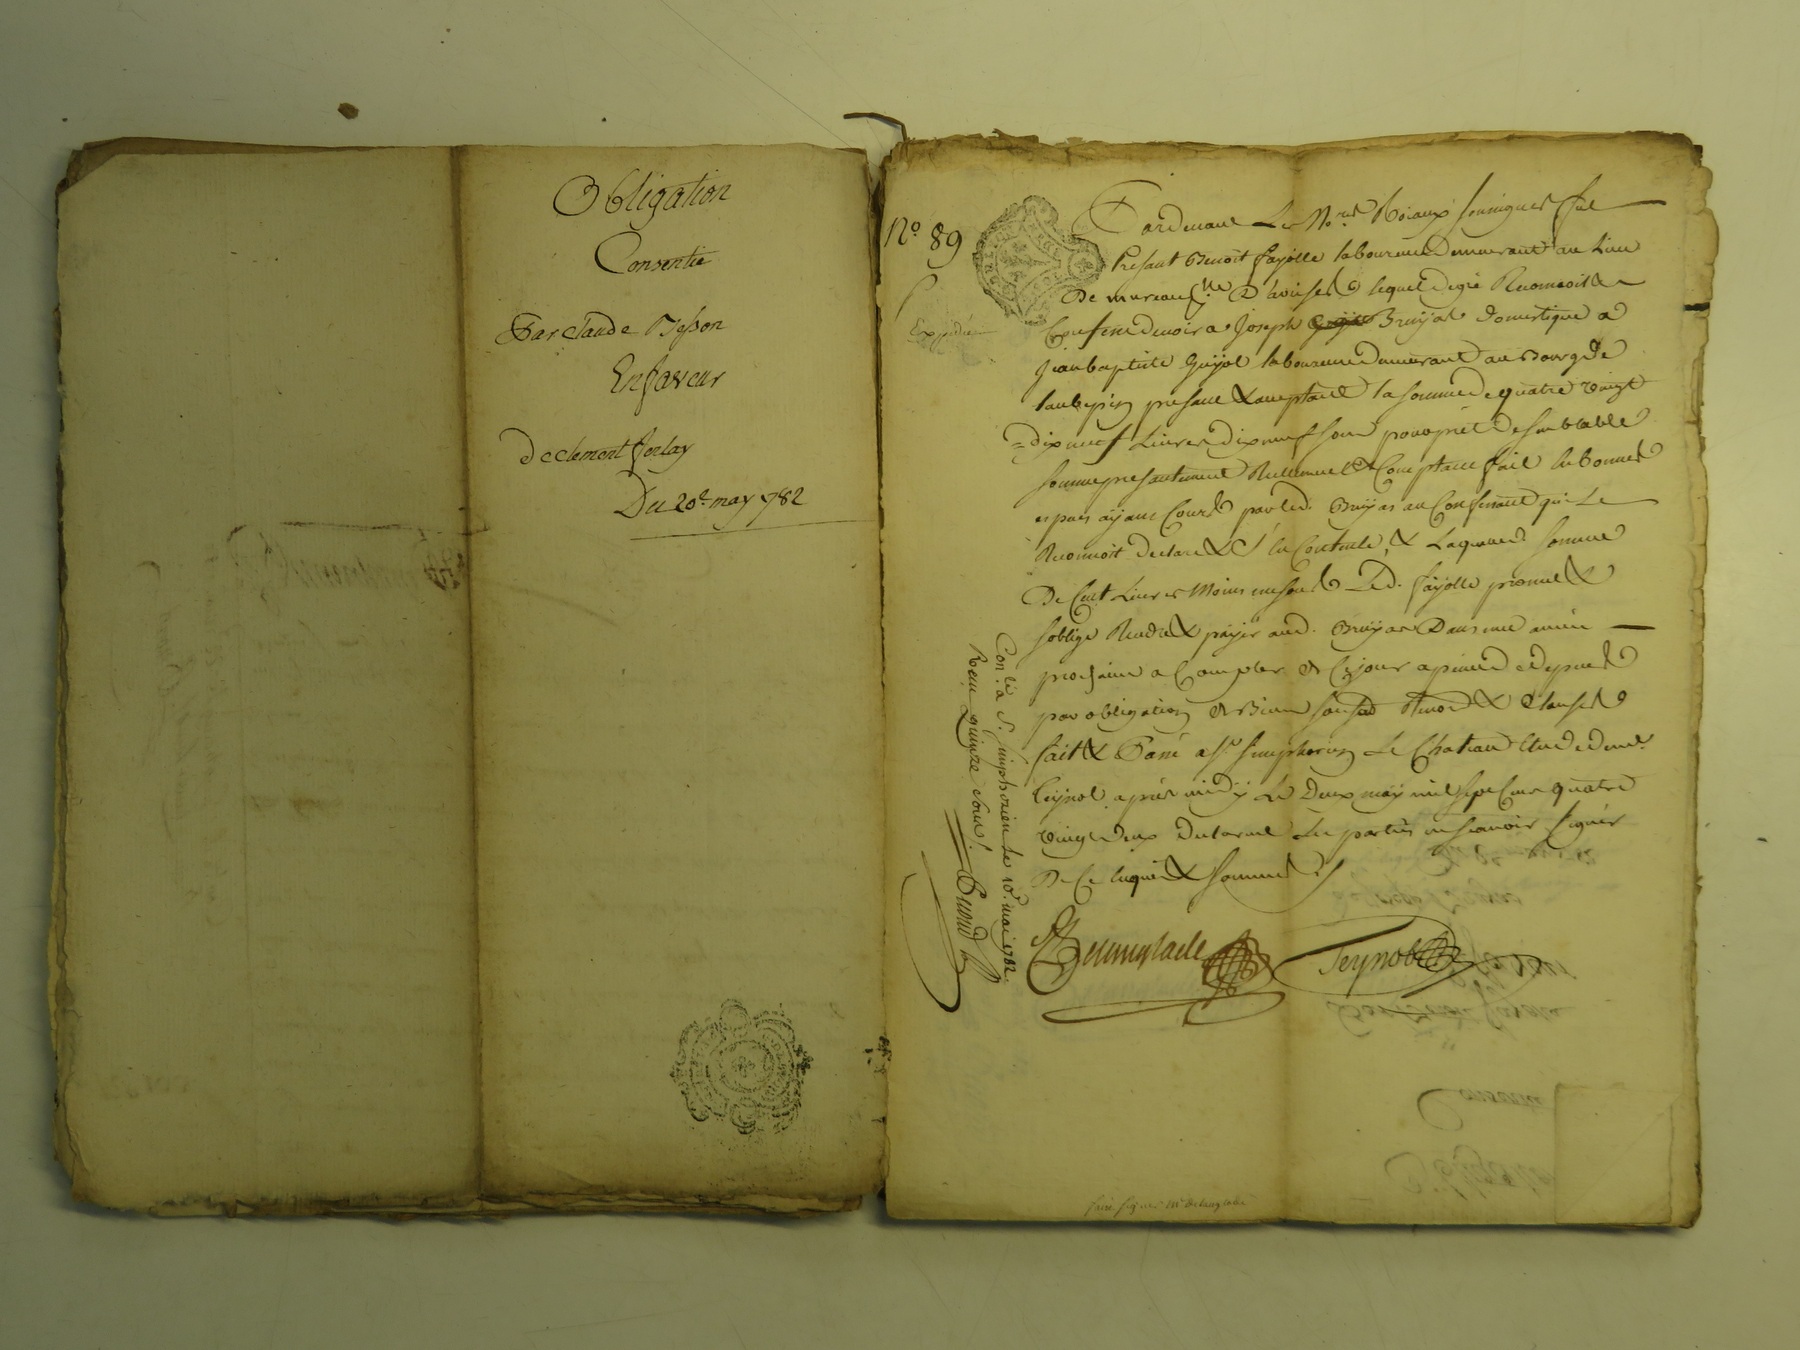 Obligation
Consentie
Par Claude Besson
En faveur
De clement ferlay
Du 20e may 1782
No. 89
Pardevant Les No.res Roiaux soussignes fut
Presant Benoit fayolle laboureur demeurant au Lieu
De D'aveises lequel de gré Reconnoit &
Confesse devoir a Joseph Bruyas domestique a
Jean baptiste Guyot laboureur demeurant au Bourg de
laubepin present & acceptant la somme de quatre vingt
= dix neuf Livres dix neuf sous pour pret de semblable
somme presentement Reellement & Comptant fait en bonnes
especes ayant Cours par led. Bruyas au Confessant qui Le
Reconnoit declare & s'en Contente, & Laquelle somme
De Cent Livres Moins un sous Led. fayolle promet &
s'oblige Rendre & payer aud. Bruyas Dans une année
prochaine a Compter de Ce jour a peine de depens
par obligation de Biens & Clauses
fait & Passé a St. Simphorien Le Chateau Etude de me.
teynot après midy Le Deux may mil sept Cent quatre
vingt deux Les parties ne scavoir signer
De Ce Enquis & Sommés
Delenglade Teynot
Expedié
Con.lé a S. Simphorien le 10e. mai 1782.
Recu quinze sous.
faire signer Me Delenglade